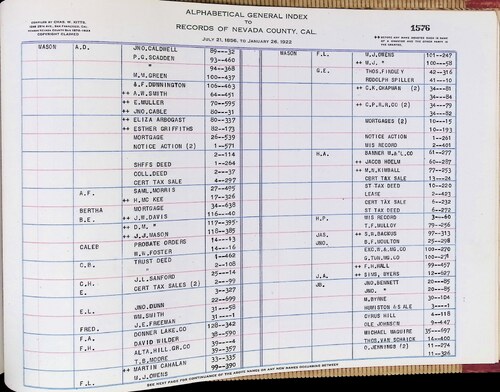 COMPILED BY CHAS. W. KITTS,
COPYRIGHT CLAIMED
ALPHABETICAL GENERAL INDEX
TO
RECORDS OF NEVADA COUNTY, CAL.
JULY 21, 1856, TO JANUARY 26, 1922
1576
MASON A.D. JNO.CALDWELL 89--32
P.G.SCADDEN 93--460
94--368
M.M.GREEN 100--437
&.F.DUNNINGTON 106--463
++ A.W.SMITH 64--451
++ E.MULLER 70--595
++ JNO.CABLE 80--31
++ ELIZA ARBOGAST 80--337
++ ESTHER GRIFFITHS 82--173
MORTGAGE 26--539
NOTICE ACTION (2) 1--571
2--114
SHFFS DEED 1--264
COLL.DEED 2--37
CERT TAX SALE 4--297
A.F. SAML.MORRIS 27--495
++ H.MC KEE 17--326
BERTHA MORTGAGE 34--638
B.E. ++ J.W.DAVIS 116--40
++ D.M. " 117--395
++ J.J.MASON 110--385
CALEB PROBATE ORDERS 14--13
W.H.FOSTER 14--16
C.B. TRUST DEED 1--462
" 2--108
J.L.SANFORD 25--14
C.H. CERT TAX SALES (2) 2--99
E. 3--327
22--699
E.L. JNO.DUNN 31--58
WM.SMITH 31--1
FRED. J.E.FREEMAN 128--342
F.A. DONNER LAKE.CO 38--590
F.H. DAVID WILDER 4--4
ALTA.HILL.GR.CO 39--357
T.B.MOORE 33--335
++ MARTIN CAHALAN 99--390
F.L. W.J.OWENS
MASON F.L. W.J.OWENS 101--247
++ M.J. " 100--58
G.E. THOS.FINDLEY 42--316
RODOLPH SPILLER 41--10
++ C.K.CHAPMAN (2) 34--81
34--84
++ C.P.R.R.CO (2) 34--79
34--82
MORTGAGES (2) 10--15
10--193
NOTICE ACTION 1--261
MIS RECORD 2--401
H.A. 61--277
++ JACOB HOELM 60--287
77--253
CERT TAX SALE 13--24
ST TAX DEED 10--220
LEASE 2--423
CERT TAX SALE 6--232
ST TAX DEED 6--272
H.P. MIS RECORD
T.F.MULLOY 79--256
JAS. ++ S.N.BACKUS 97--313
JNO. B.F.MOULTON 25--298
EXC.R.& MG.CO 100--270
Q.TUN.MG.CO 100--278
++ F.H.HALL 99--457
J.A. ++ SIML.BYERS 12--527
JB. JNO.BENNETT 20--85
JNO. 20--85
M.BYRNE 30--104
3--1
CYRUS HILL 4--118
OLE JOHNSEN 9--447
MICHAEL MAGUIRE 35--697
THOS.VAN SCHAICK 14--400
D.JENNINGS (2) 11--274
11--326
SEE NEXT PAGE FOR CONTINUANCE OF THE ABOVE NAMES OR ANY NEW NAMES OCCURRING BETWEEN